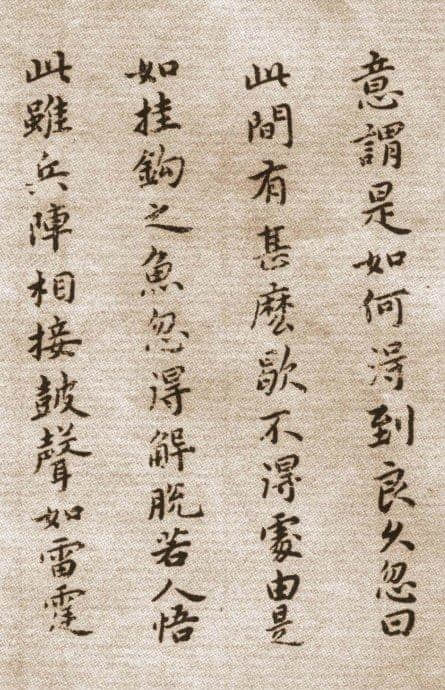 意謂是如何得到良久忽曰
此間有甚麽歇不得處由是
如挂鈎之魚忽得解脫若人悟
此雖兵陣相接皷聲如雷霆